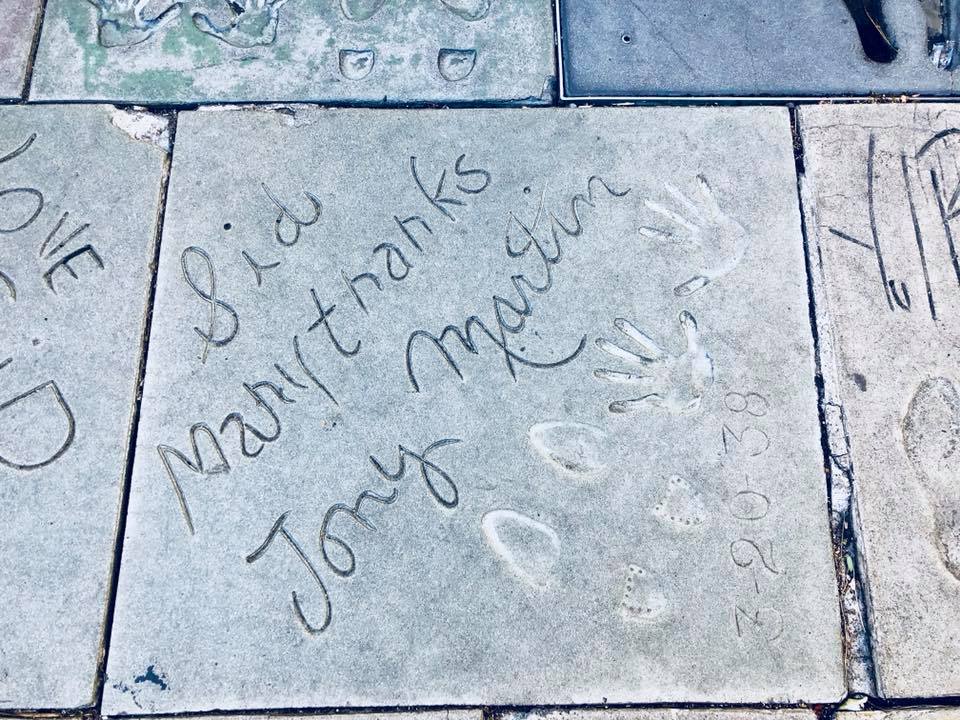 Sid
Many thanks
Tony Martin
3-20-38
OVE